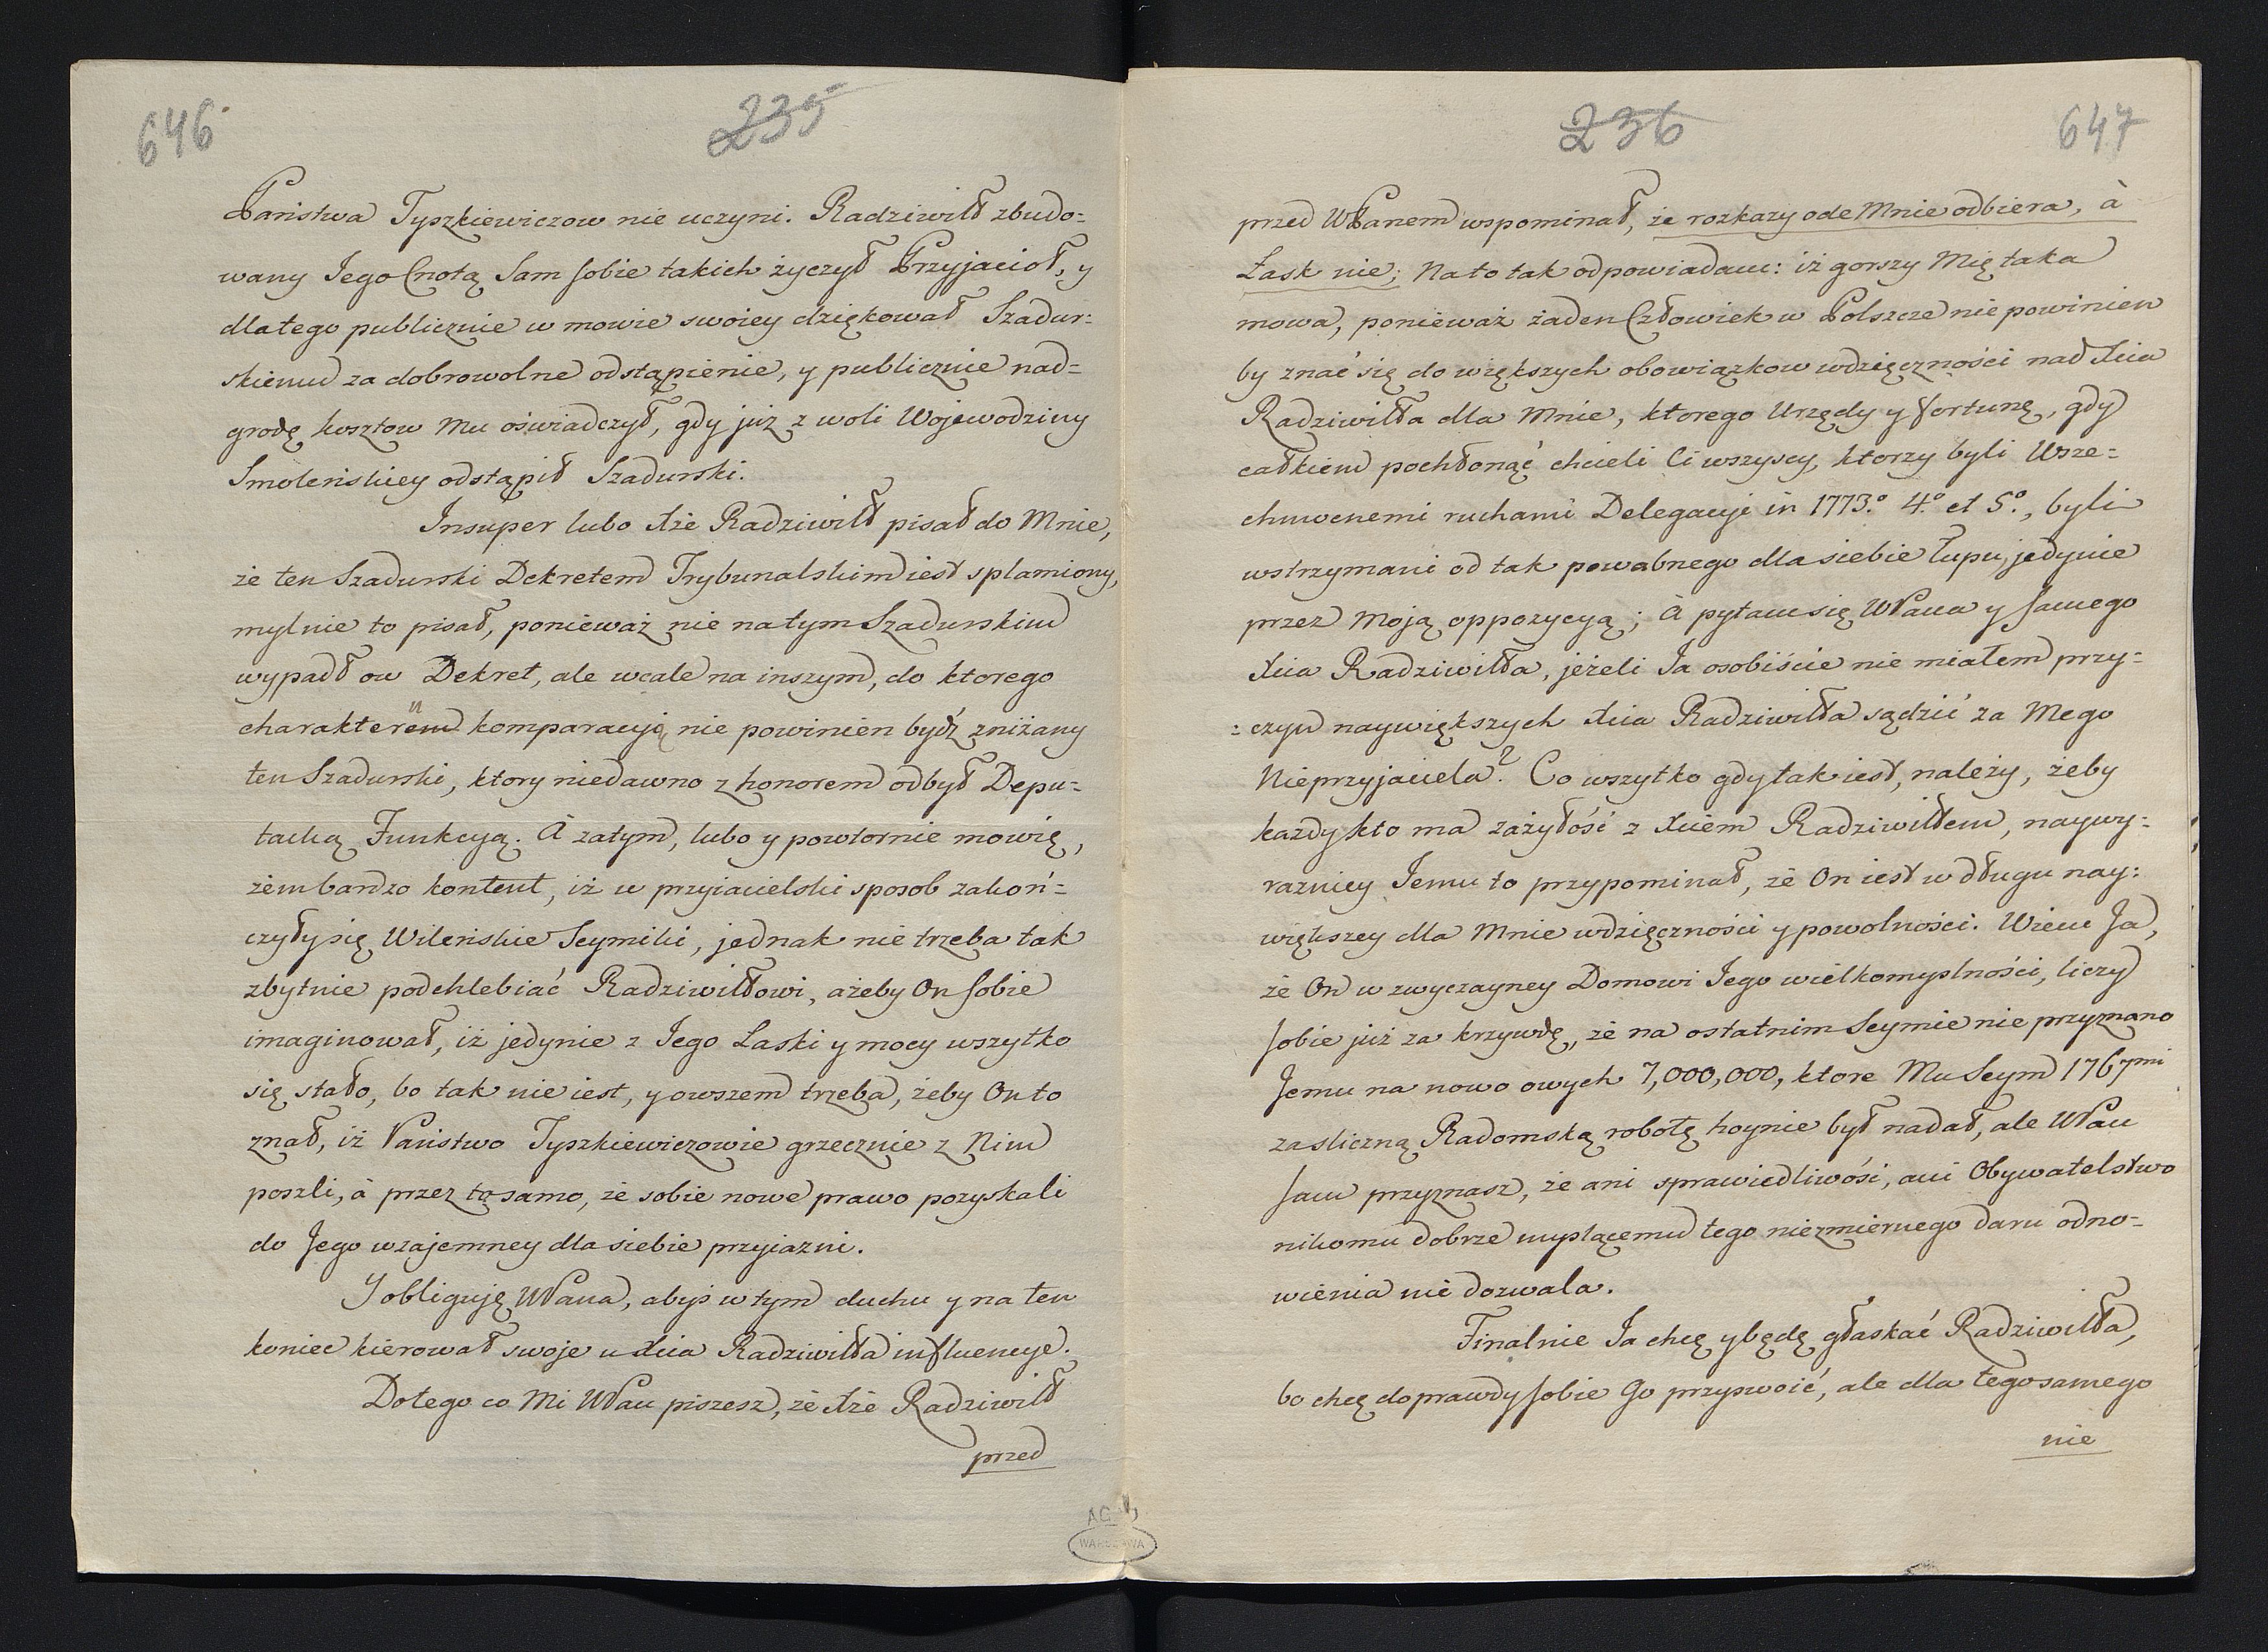 646.
235
Państwa Tyszkiewiczow nie uczyni. Radziwiłł zbudo=
wany Jego Cnotą Sam sobie takich życzył Przyjacioł, y
dlatego publicznie w mowie swoiey dziękował Szadur=
skiemu za dobrowolne odstąpienie, y publicznie nad=
grodę kosztow Mu oświadczył, gdy już z woli Wojewodziny
Smoleńskiey odstąpił Szadurski.
Insuper lubo Xże Radziwiłł pisał do Mnie,
że ten Szadurski Dekretem Trybunalskim iest splamiony,
mylnie to pisał, ponieważ nie na tym Szadurskim
wypadł ow Dekret, ale wcale na inszym, do ktorego
charakteru komparacyją nie powinien bydź zniżany
ten Szadurski, ktory niedawno z honorem odbył Depu=
tacką Funkcyą. À zatym, lubo y powtornie mowię,
żem bardzo kontent, iż w przyiacielski sposob zakoń=
czyły się Wileńskie Seymiki, jednak nie trzeba tak
zbytnie podchlebiać Radziwiłłowi, ażeby On sobie
imaginował, iż jedynie z Jego Łaski y mocy wszytko
się stało, bo tak nie iest, y owszem trzeba, żeby On to
znał, iż Państwo Tyszkiewiczowie grzecznie z Nim
poszli, à przez to samo, że sobie nowe prawo pozyskali
do Jego wzajemney dla siebie przyiazni.
Y obliguję WPana, abyś w tym duchu y na ten
koniec kierował swoje u Xcia Radziwiłła influencye.
Do tego co Mi WPan piszesz, że Xże Radziwiłł
przed
AGAD
WARSZAWA
236
647
przed WPanem wspominał, że rozkazy ode Mnie odbiera, à
Łask nie; Na to tak odpowiadam: iż gorszy Mię taka
mowa, ponieważ żaden Człowiek w Polszcze nie powinien
by znać się do większych obowiązkow wdzięczności nad Xcia
Radziwiłła dla Mnie, ktorego Urzędy y fortunę, gdy
całkiem pochłonąć chcieli Ci wszyscy, ktorzy byli Wsze=
chmocnemi ruchami Delegacyi in 1773.º 4.º et 5º., byli
wstrzymani od tak powabnego dla siebie łupu, jedynie
przez Moją oppozycyą; À pytam się WPana y samego
Xcia Radziwiłła, jeżeli Ja osobiście nie miałem przy=
=czyn naywiększych Xcia Radziwiłła sądzić za Mego
Nieprzyjaciela? Co wszytko gdy tak iest, należy, żeby
każdy kto ma zażyłość z Xciem Radziwiłłem, naywy=
razniey Jemu to przypominał, że On iest w długu nay=
większey dla Mnie wdzięczności y powolności. Wiem Ja,
że On w zwyczayney Domowi Jego wielkomyslności, liczy
sobie już za krzywdę, że na ostatnim Seymie nie przyznano
Jemu na nowo owych 7,000,000, ktore Mu Seym 1767mi
za sliczną Radomską robotę hoynie był nadał, ale WPan
sam przyznasz, że ani sprawiedliwość, ani Obywatelstwo
nikomu dobrze myslącemu tego niezmiernego daru odno=
wienia nie dozwala.
Finalnie Ja chcę y będę głaskać Radziwiłła,
bo chcę do prawdy sobie Go przyswoić, ale dla tego samego
nie